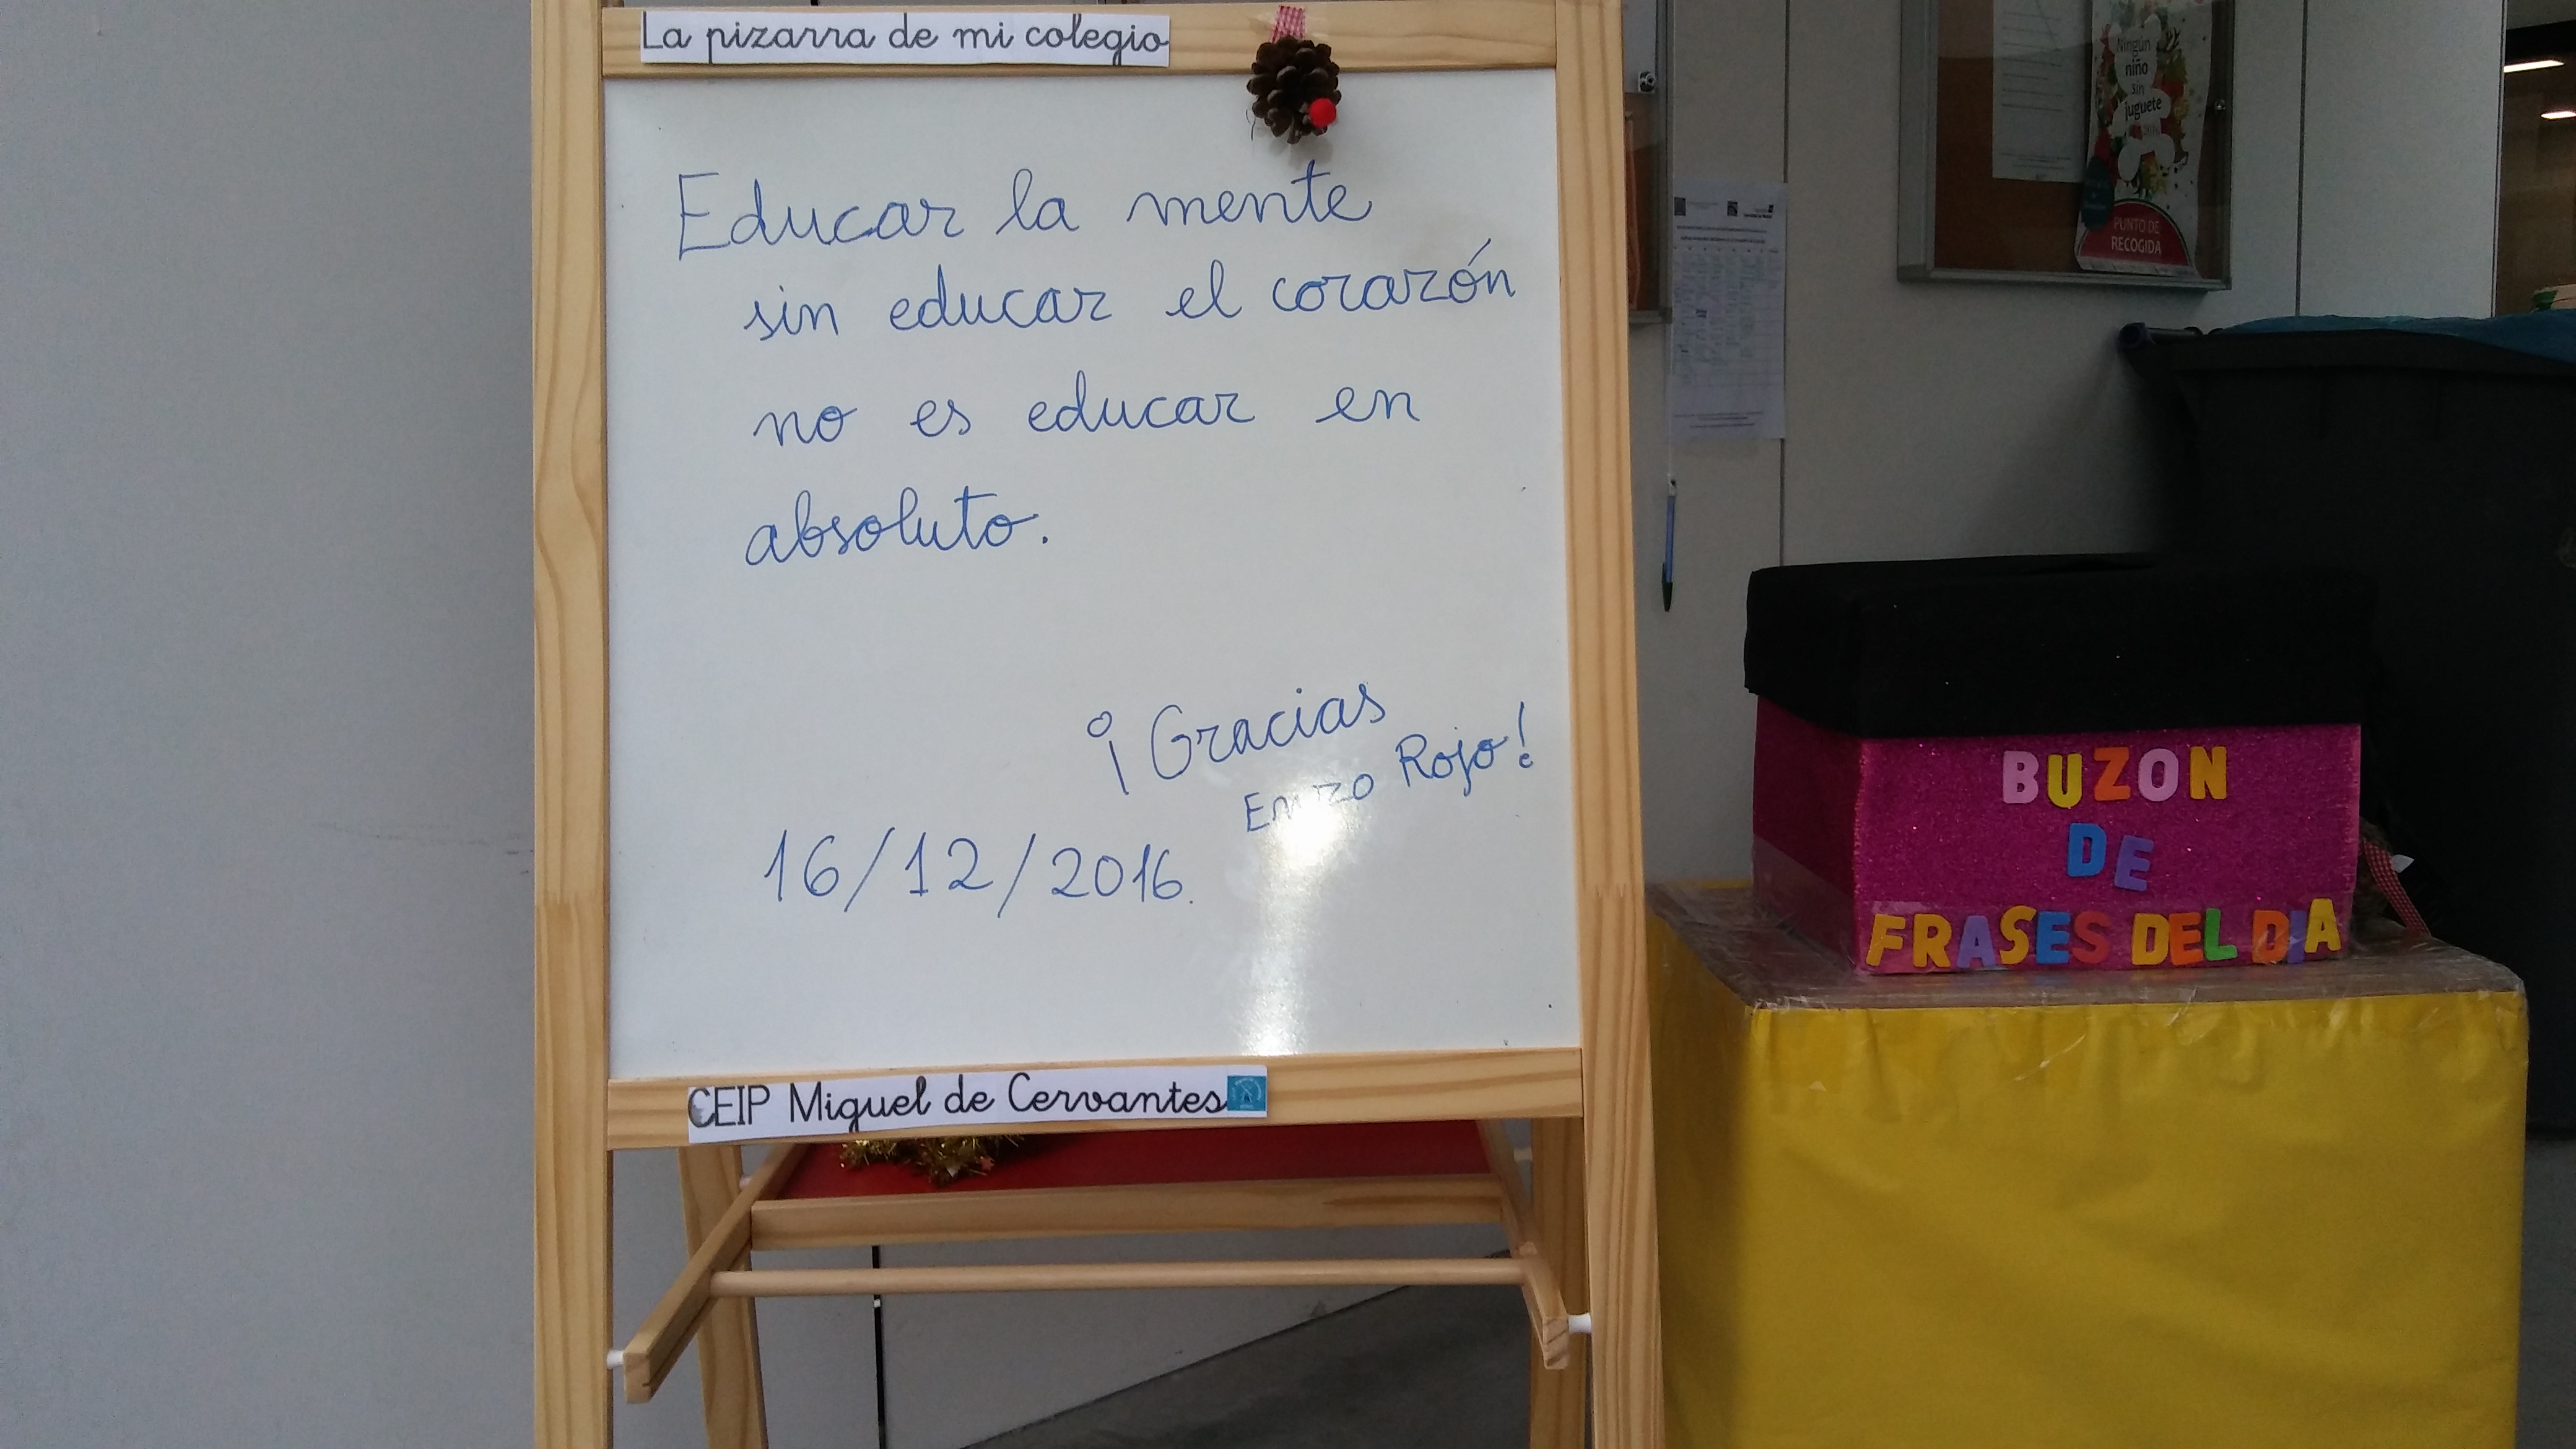 La pizarra de mi colegio
Educar la mente
sin educar el corazón
no es educar en
absoluto.
¡Gracias
Enzo Rojo!
16/12/2016.
CEIP Miguel de Cervantes
Ningún
niño
sin
juguete
PUNTO DE
RECOGIDA
BUZON
DE
FRASES DEL DIA